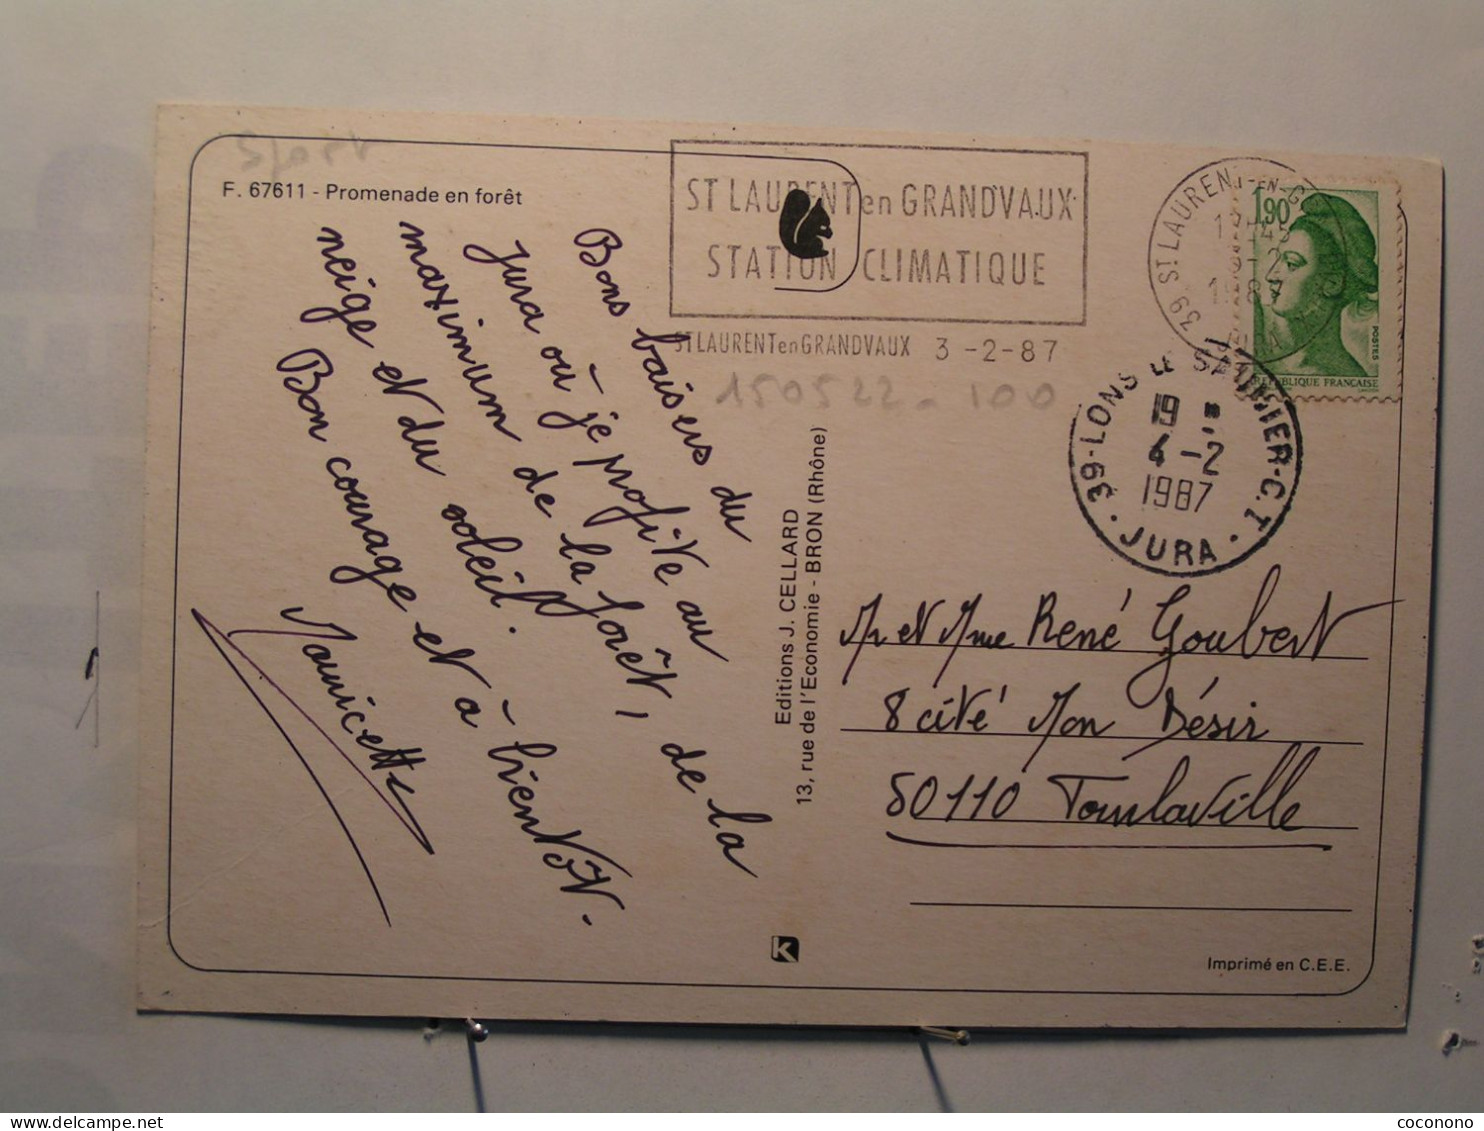 Sport
F. 67611 - Promenade en forêt
ST LAURENT en GRANDVAUX
STATION CLIMATIQUE
ST LAURENT en GRANDVAUX 3 -2-87
150522 - 100
39 ST LAURENT-EN-GRANDVAUX JURA
1987
1,90
POSTES
REPUBLIQUE FRANCAISE
39-LONS LE SAUNIER-C.T
19
4 -2
1987
· JURA ·
Bons baisers du
Jura où je profite au
maximum de la forêt, de la
neige et du soleil.
Bon courage et à bientôt.
Mauricette
Editions J. CELLARD
13, rue de l'Economie - BRON (Rhône)
Mr et Mme René Goubert
8 cité Mon Désir
50110 Tourlaville
K
Imprimé en C.E.E.
coconono